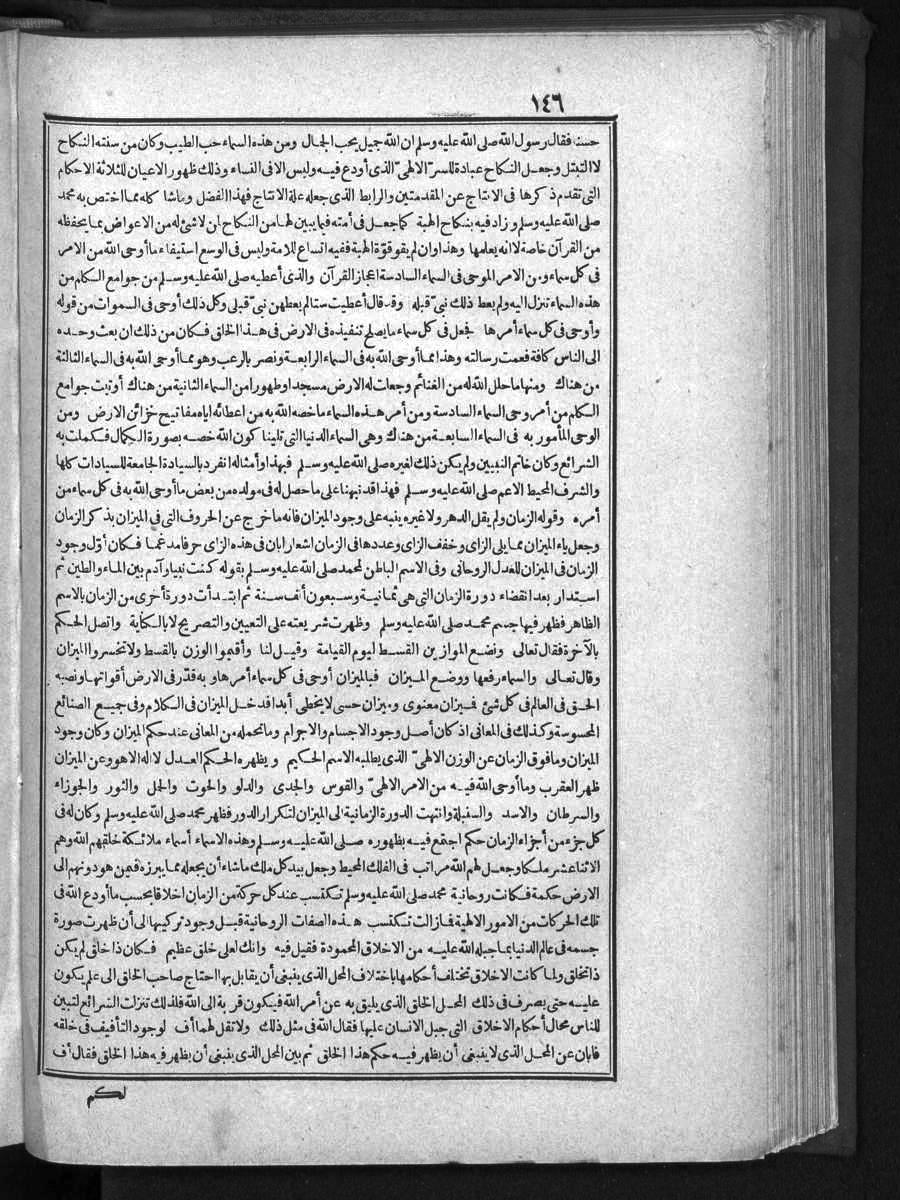 ١٤٦
حسنا فقال رسول الله صلى الله عليه وسلم ان الله جميل يحب الجمال ومن هذه السماء حب الطيب وكان من سنته النكاح
لا التبتل وجعل النكاح عبادة للسر الالهي الذي أودع فيه وليس الا في النساء وذلك ظهور الاعيان للثلاثة الاحكام
التي تقدم ذكرها في الانتاج عن المقدمتين والرابط الذي جعله علة الانتاج فهذا الفضل وماشا كله مما اختص به محمد
صلى الله عليه وسلم وزاد فيه بنكاح الهبة كما جعل في أمته فيما يبين لها من النكاح لمن لا شئ له من الاعواض بما يحفظه
من القرآن خاصة لا انه يعلمها وهذا وان لم يقو قوة الهبة ففيه اتساع للامة وليس في الوسع استيفاء ما أوحى الله من الامر
في كل سماء ومن الامر الموحى في السماء السادسة اعجاز القرآن والذي أعطيه صلى الله عليه وسلم من جوامع الكلم من
هذه السماء تنزل اليه ولم يعط ذلك نبي قبله وقد قال أعطيت ستا لم يعطهن نبي قبلي وكل ذلك أوحى في السموات من قوله
وأوحى في كل سماء أمرها فجعل في كل سماء ما يصلح تنفيذه في الارض في هذا الخلق فكان من ذلك ان بعث وحده
الى الناس كافة فعمت رسالته وهذا مما أوحى الله به في السماء الرابعة ونصر بالرعب وهو مما أوحى الله به في السماء الثالثة
من هناك ومنها ما حلل الله له من الغنائم وجعلت له الارض مسجدا وطهورا من السماء الثانية من هناك أوتيت جوامع
الكلم من أمر وحى السماء السادسة ومن أمر هذه السماء ما خصه الله به من اعطائه اياه مفاتيح خزائن الارض ومن
الوحى المأمور به في السماء السابعة من هناك وهي السماء الدنيا التي تلينا كون الله خصه بصورة الكمال فكملت به
الشرائع وكان خاتم النبيين ولم يكن ذلك لغيره صلى الله عليه وسلم فبهذا وأمثاله انفرد بالسيادة الجامعة للسيادات كلها
والشرف المحيط الاعم صلى الله عليه وسلم فهذا قد نبهنا على ما حصل له في مولده من بعض ما أوحى الله به في كل سماء من
أمره وقوله الزمان ولم يقل الدهر ولا غيره ينبه على وجود الميزان فانه ما خرج عن الحروف التي في الميزان بذكر الزمان
وجعل ياء الميزان مما يلي الزاي وخفف الزاي وعددها في الزمان اشعارا بان في هذه الزاي حرفا مدغما فكان أول وجود
الزمان في الميزان للعدل الروحاني وفي الاسم الباطن لمحمد صلى الله عليه وسلم بقوله كنت نبيا وآدم بين الماء والطين ثم
استدار بعد انقضاء دورة الزمان التي هي ثمانية وسبعون ألف سنة ثم ابتدأت دورة أخرى من الزمان بالاسم
الظاهر فظهر فيها جسم محمد صلى الله عليه وسلم وظهرت شريعته على التعيين والتصريح لا بالكناية واتصل الحكم
بالآخرة فقال تعالى ونضع الموازين القسط ليوم القيامة وقيل لنا وأقيموا الوزن بالقسط ولا تخسروا الميزان
وقال تعالى والسماء رفعها ووضع الميزان فبالميزان أوحى في كل سماء أمرها وبه قدر في الارض أقواتها ونصبه
الحق في العالم في كل شئ فميزان معنوى وميزان حسى لا يخطى أبدا فدخل الميزان في الكلام وفي جميع الصنائع
المحسوسة وكذلك في المعاني اذ كان أصل وجود الاجسام والاجرام وما تحمله من المعاني عند حكم الميزان وكان وجود
الميزان وما فوق الزمان عن الوزن الالهي الذي يطلبه الاسم الحكيم ويظهره الحكم العدل لا اله الا هو وعن الميزان
ظهر العقرب وما أوحى الله فيه من الامر الالهي والقوس والجدى والدلو والحوت والحمل والثور والجوزاء
والسرطان والاسد والسنبلة وانتهت الدورة الزمانية الى الميزان لتكرار الدور فظهر محمد صلى الله عليه وسلم وكان له في
كل جزء من أجزاء الزمان حكم اجتمع فيه بظهوره صلى الله عليه وسلم وهذه الاسماء أسماء ملائكة خلقهم الله وهم
الاثنا عشر ملكا وجعل لهم الله مراتب في الفلك المحيط وجعل بيد كل ملك ما شاء أن يجعله مما يبرزه فيمن هو دونهم الى
الارض حكمة فكانت روحانية محمد صلى الله عليه وسلم تكتسب عند كل حركة من الزمان اخلاقا بحسب ما أودع الله في
تلك الحركات من الامور الالهية فما زالت تكتسب هذه الصفات الروحانية قبل وجود تركيبها الى أن ظهرت صورة
جسمه في عالم الدنيا بما جبله الله عليه من الاخلاق المحمودة فقيل فيه وانك لعلى خلق عظيم فكان ذا خلق لم يكن
ذا تخلق ولما كانت الاخلاق تختلف أحكامها باختلاف المحل الذي ينبغي أن يقابل بها احتاج صاحب الخلق الى علم يكون
عليه حتى يصرف في ذلك المحل الخلق الذي يليق به عن أمر الله فيكون قربة الى الله فلذلك تنزلت الشرائع لتبين
للناس محال أحكام الاخلاق التي جبل الانسان عليها فقال الله في مثل ذلك ولا تقل لهما أف لوجود التأفيف في خلقه
فابان عن المحل الذي لا ينبغي أن يظهر فيه حكم هذا الخلق ثم بين المحل الذي ينبغي أن يظهر فيه هذا الخلق فقال أف
لكم